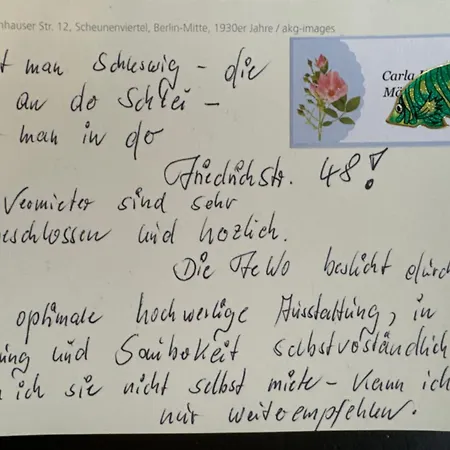 nhauser Str. 12, Scheunenviertel, Berlin-Mitte, 1930er Jahre / akg-images
t man Schleswig – die
an de Schlei –
man in do
Friedrichstr. 48!
Vermieter sind sehr
eschlossen und hezlich.
Die FeWo besticht durch
optimale hochwertige Ausstattung, in
ung und Sauberkeit selbstverständlich
n ich sie nicht selbst miete – kann ich
nur weiterempfehlen.
Carla
Mä